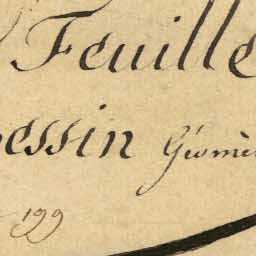 Feuille
essin Géomè
199